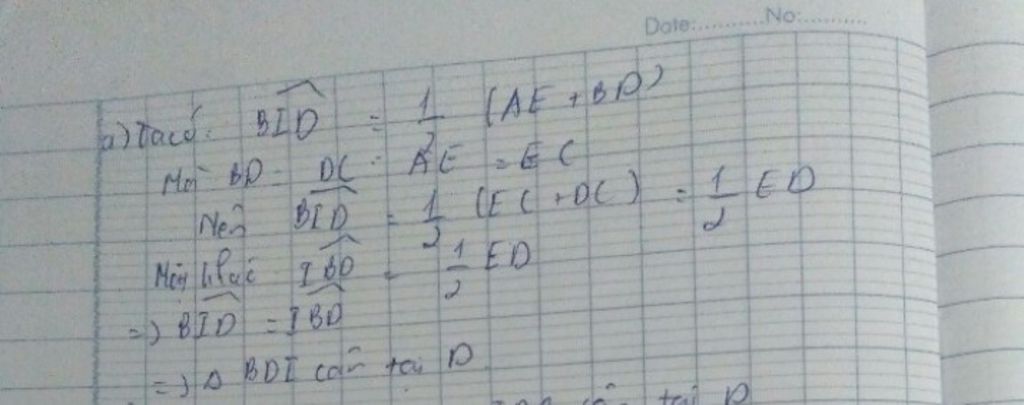 Date:............No:............
a) Ta có: \widehat{BID} = \frac{1}{2} (AE + BD)
Mà BD = DC ; AE = EC
Nên \widehat{BID} = \frac{1}{2} (EC + DC) = \frac{1}{2} ED
Mặt khác \widehat{IBD} = \frac{1}{2} ED
=> \widehat{BID} = \widehat{IBD}
=> Δ BDI cân tại D
cân tại D